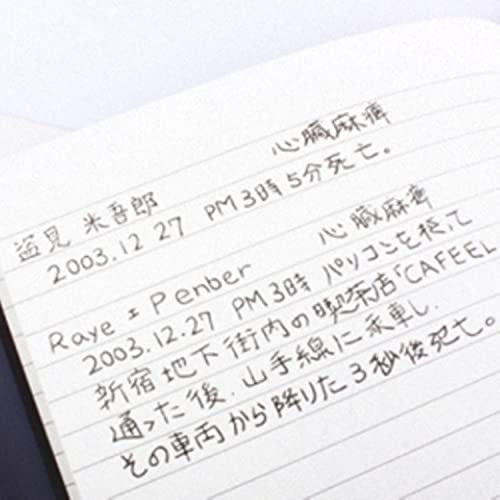 盗見 米吾郎 心臓麻痺
2003.12 27 PM 3時5分死亡。
Raye = Penber 心臓麻痺
2003.12.27 PM 3時 パソコンを
新宿地下街内の喫茶店「CAFEEL
通った後、山手線に乗車し、
その車両から降りた3秒後死亡。